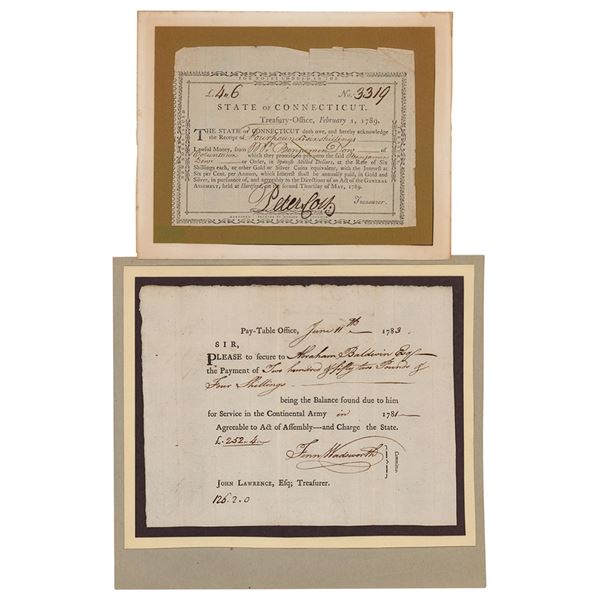 £4.6 No. 3319
STATE OF CONNECTICUT,
Treasury-Office, February 1, 1789.
THE STATE OF CONNECTICUT doth owe, and hereby acknowledge
the Receipt of Four pounds six shillings
Lawful Money, from
which they promise to pay unto the said Benjamin
or Order, in Spanish Milled Dollars, at the Rate of Six
Shillings each, or other Gold or Silver Coins equivalent, with the Interest at
Six per Cent. per Annum, which Interest shall be annually paid, in Gold and
Silver, in pursuance of, and agreeably to the Directions of an Act of the GENERAL
ASSEMBLY, held at Hartford, on the second Thursday of May, 1789.
Peter Colt Treasurer.
Pay-Table Office, June 11th 1783.
SIR,
PLEASE to secure to Abraham Baldwin Esqr
the Payment of Two hundred & fifty two Pounds &
Four Shillings
being the Balance found due to him
for Service in the Continental Army in 1781
Agreeable to Act of Assembly---and Charge the State.
£.252.4
Finn Wadsworth } Committee
JOHN LAWRENCE, Esq; Treasurer.
126.2.0